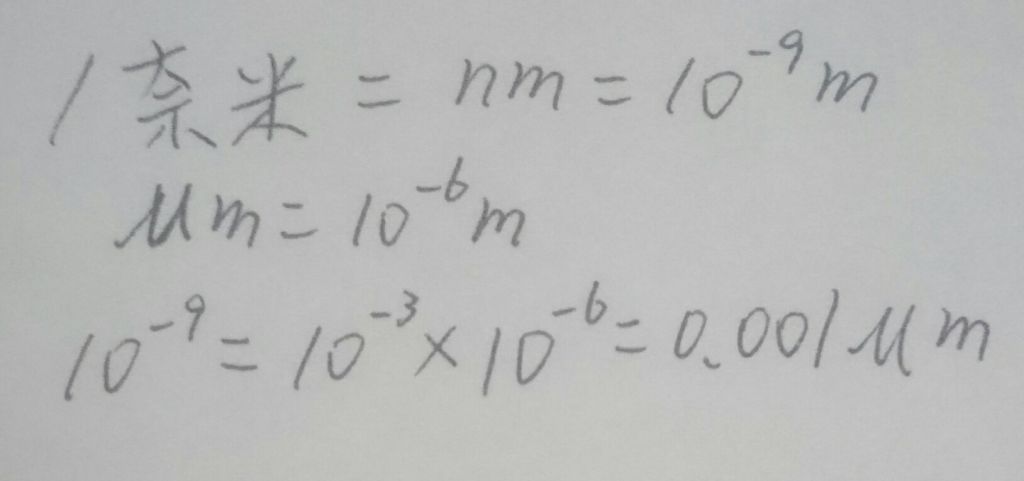 1奈米 = nm = 10⁻⁹m
μm = 10⁻⁶m
10⁻⁹ = 10⁻³ × 10⁻⁶ = 0.001μm